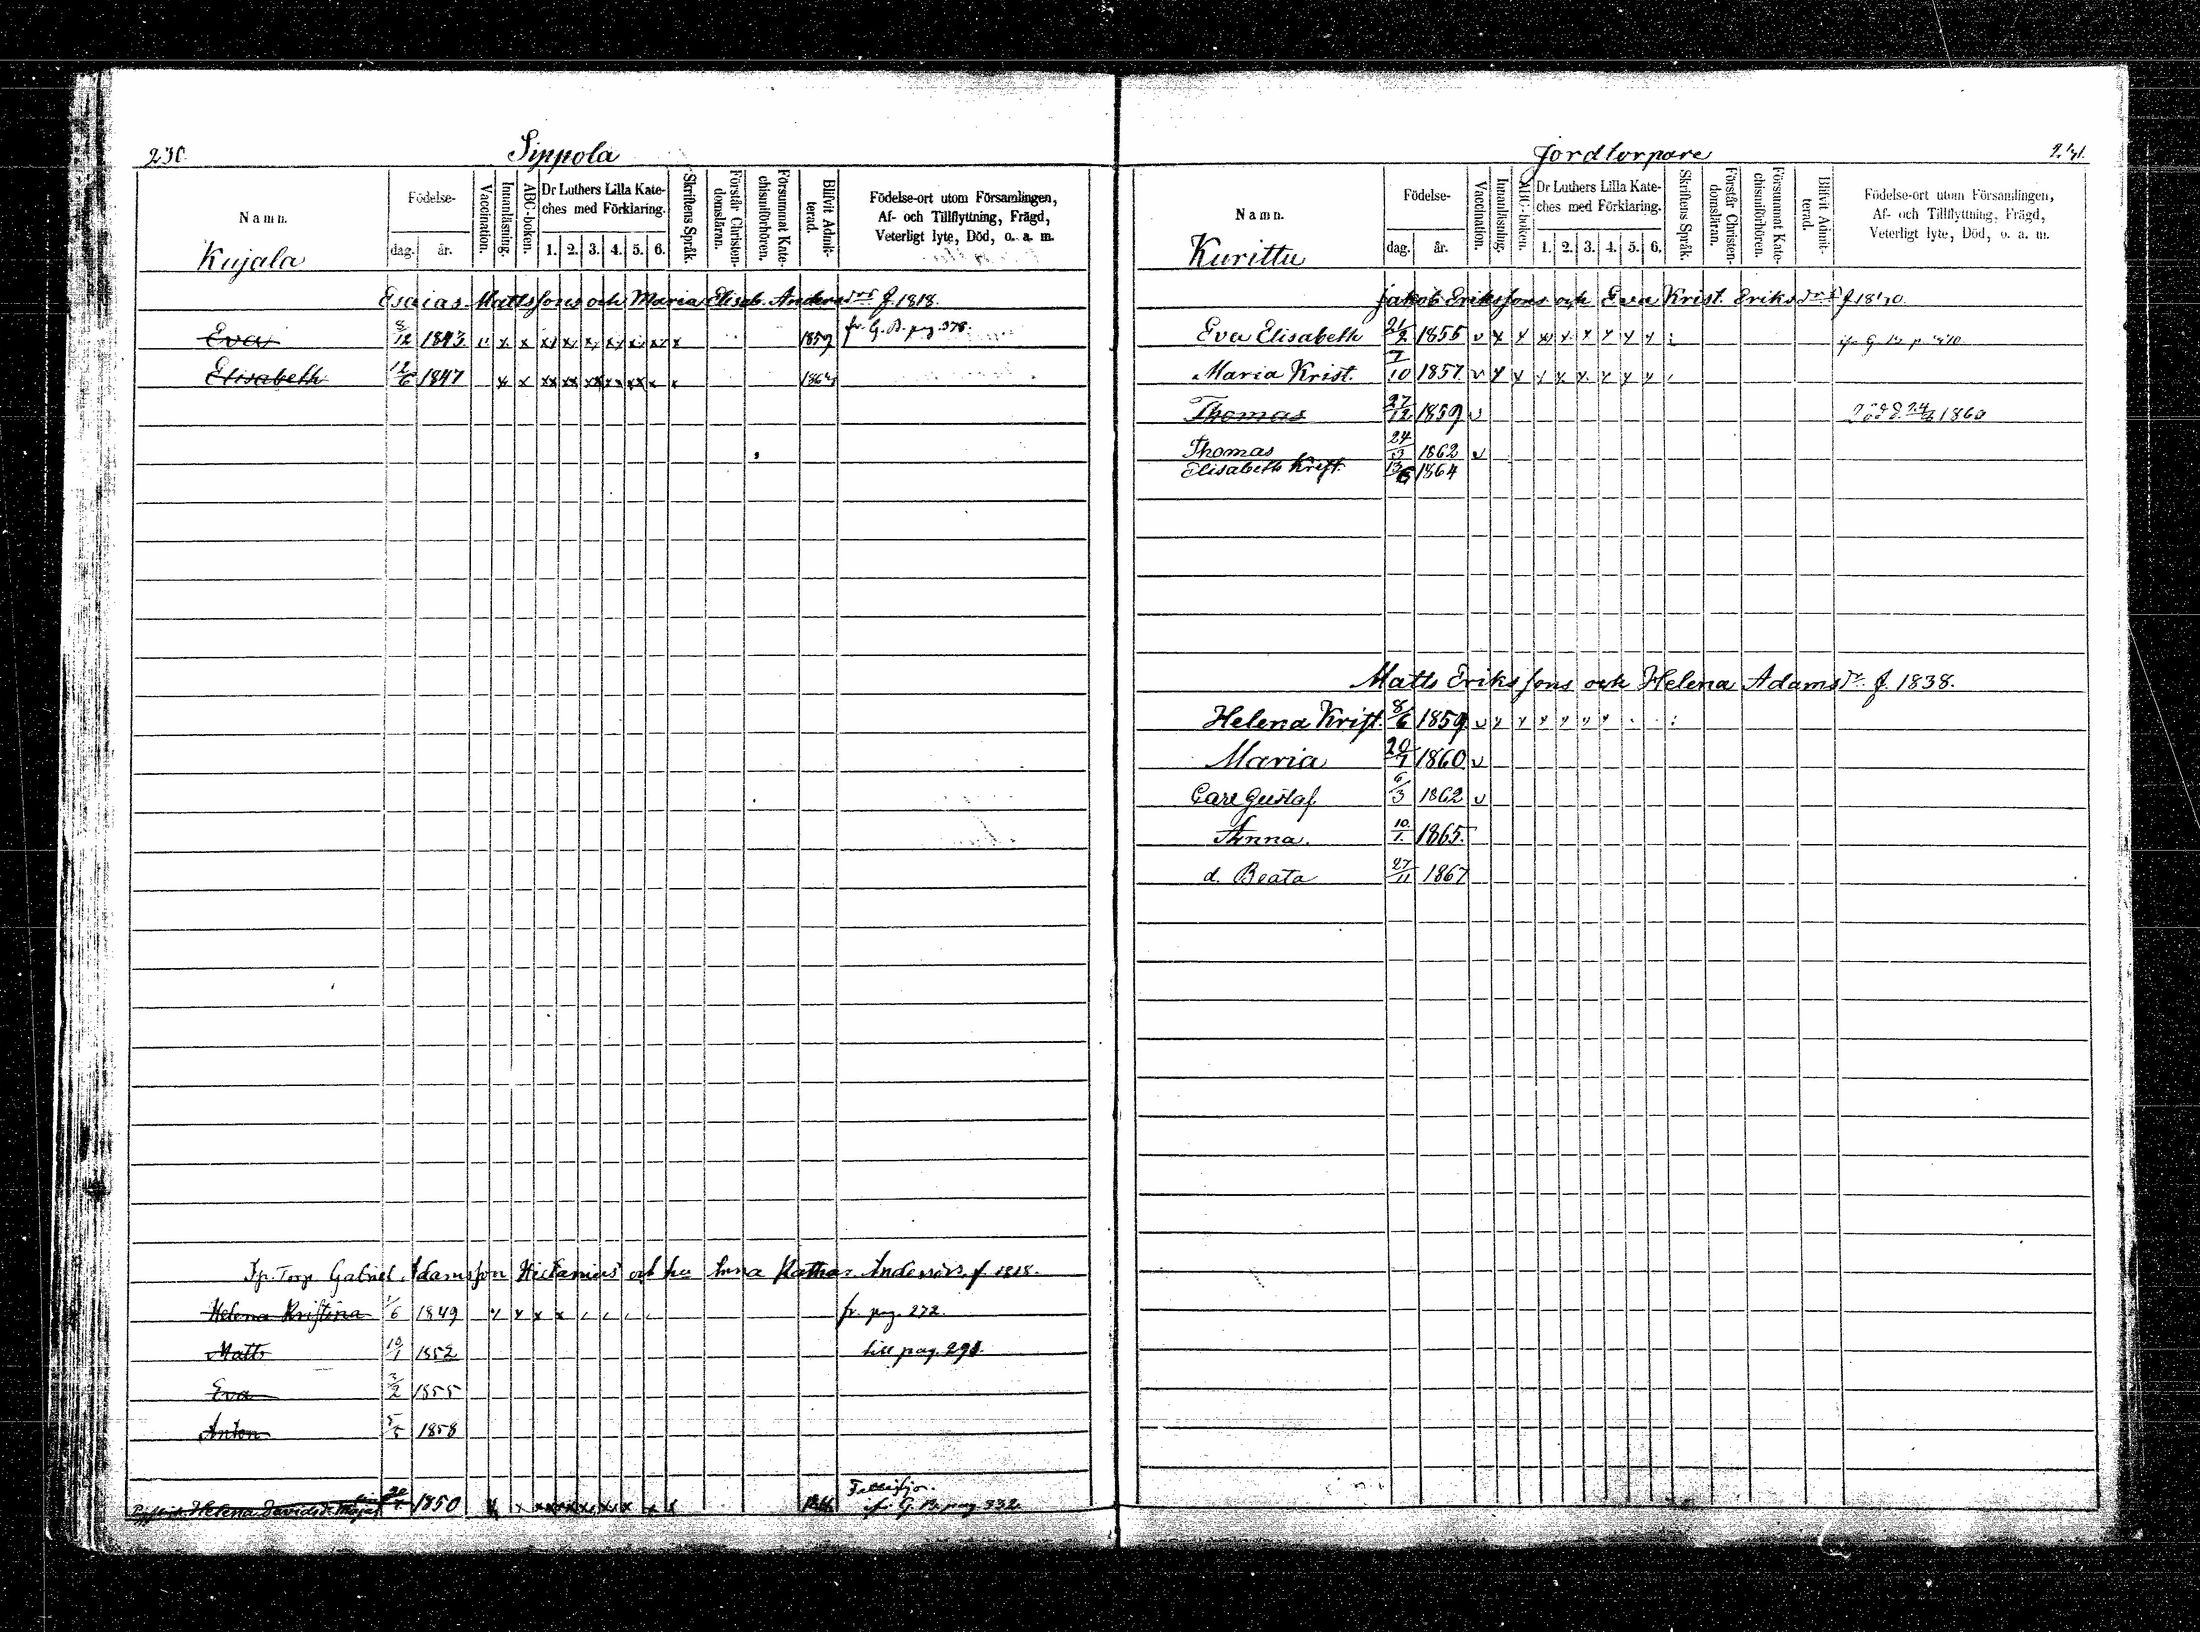 230.
Sippola
Namn.
Födelse-
dag. år.
Vaccination.
Innanläsning.
ABC-boken.
Dr Luthers Lilla Kate-
ches med Förklaring.
1. 2. 3. 4. 5. 6.
Skriftens Språk.
Förstår Christen-
domsläran.
Försummat Kate-
chismiförhören.
Blifvit Admit-
terad.
Födelse-ort utom Församlingen,
Af- och Tillflyttning, Frägd,
Veterligt lyte, Död, o. a. m.
Kujala
Esaias Mattssons och Maria Elisab. Andersdrs f. 1818.
Eva 8/12 1843 v x x x x x x x x x 1859 fr. G. B. pag. 378.
Elisabeth 12/6 1847 x x xx xx xx xx xx x x
Torp. Gabriel Adamsson och hu Anna Kathar. Andersdrs. f. 1818.
Helena Kristina 1/6 1849 x x x x fr. pag. 272.
Matts 10/1 1852 till pag. 291.
Eva 3/2 1855
Anton 5/5 1858
Helena Davidsdr 1850 G. B. pag. 332.
Jordtorpare
Namn.
Födelse-
dag. år.
Vaccination.
Innanläsning.
ABC-boken.
Dr Luthers Lilla Kate-
ches med Förklaring.
1. 2. 3. 4. 5. 6.
Skriftens Språk.
Förstår Christen-
domsläran.
Försummat Kate-
chismiförhören.
Blifvit Admit-
terad.
Födelse-ort utom Församlingen,
Af- och Tillflyttning, Frägd,
Veterligt lyte, Död, o. a. m.
Kurittu
Jakob Erikssons och Eva Krist. Eriksdrs
Eva Elisabeth 21/2 1855 v x x x x x x x x
Maria Krist. 7/10 1857 v x x x x x x x x
Thomas 27/12 1859 v Död 1860
Thomas 24/3 1862 v
Elisabeth Krist. 13/6 1864
Matts Erikssons och Helena Adamsdr. f. 1838.
Helena Krist. 8/6 1859 v x x x x x x
Maria 20/7 1860 v
Carl Gustaf 6/3 1862 v
Anna. 10/1 1865.
d. Beata 27/11 1867